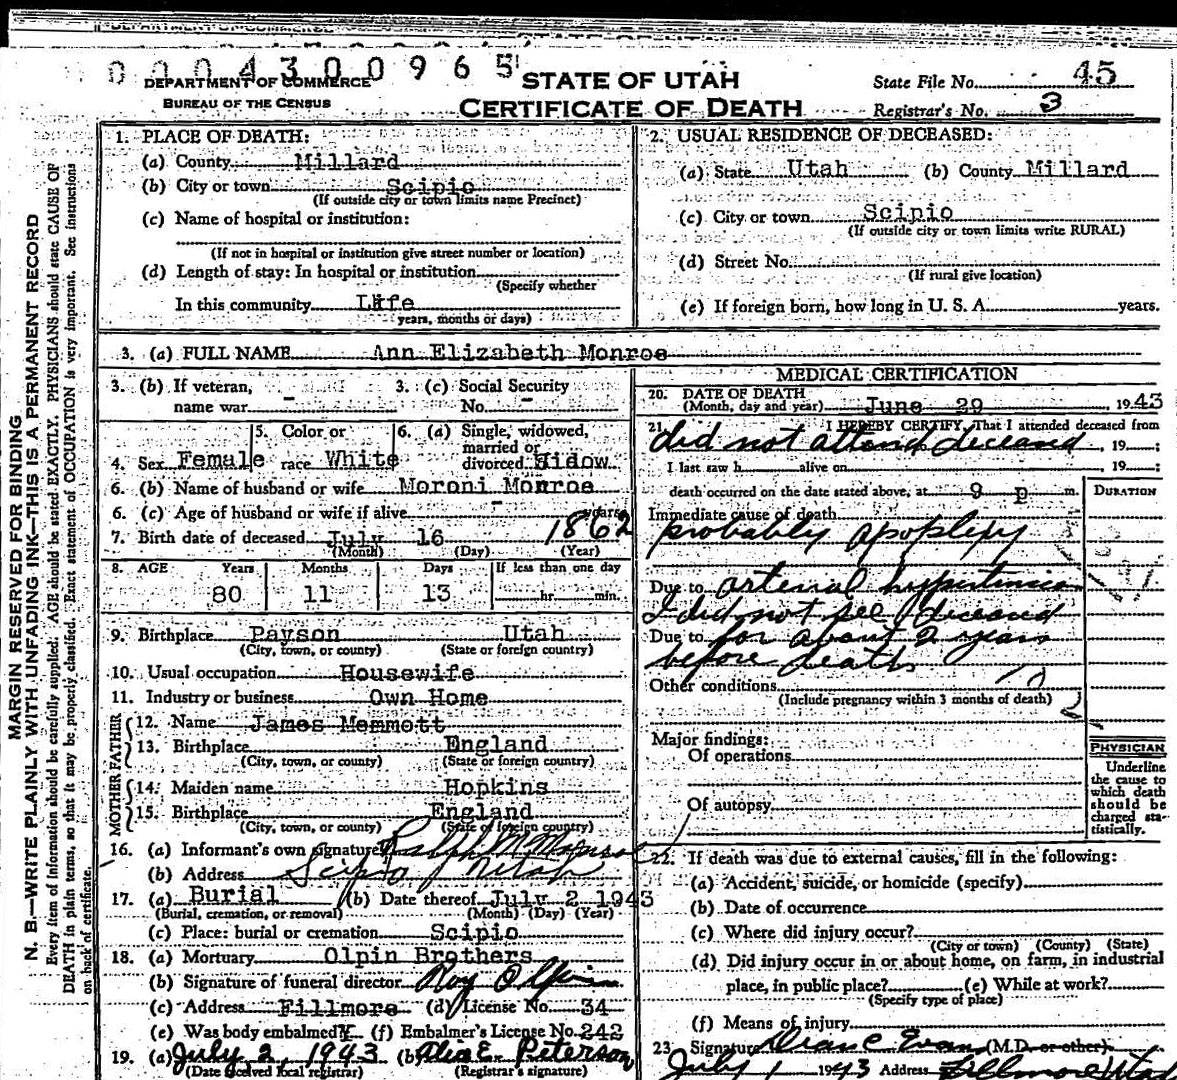 0004300965
DEPARTMENT OF COMMERCE
BUREAU OF THE CENSUS
STATE OF UTAH
CERTIFICATE OF DEATH
State File No. 45
Registrar's No. 3
MARGIN RESERVED FOR BINDING
N. B.—WRITE PLAINLY WITH UNFADING INK—THIS IS A PERMANENT RECORD
Every item of information should be carefully supplied. AGE should be stated EXACTLY. PHYSICIANS should state CAUSE OF
DEATH in plain terms, so that it may be properly classified. Exact statement of OCCUPATION is very important. See instructions
on back of certificate.
1. PLACE OF DEATH:
(a) County Millard
(b) City or town Scipio
(If outside city or town limits name Precinct)
(c) Name of hospital or institution:
(If not in hospital or institution give street number or location)
(d) Length of stay: In hospital or institution
(Specify whether
In this community Life
years, months or days)
2. USUAL RESIDENCE OF DECEASED:
(a) State Utah (b) County Millard
(c) City or town Scipio
(If outside city or town limits write RURAL)
(d) Street No.
(If rural give location)
(e) If foreign born, how long in U. S. A. years.
3. (a) FULL NAME Ann Elizabeth Monroe
3. (b) If veteran,
name war -
3. (c) Social Security
No. -
4. Sex Female
5. Color or
race White
6. (a) Single, widowed,
married or
divorced Widow
6. (b) Name of husband or wife Moroni Monroe
6. (c) Age of husband or wife if alive - years
7. Birth date of deceased July 16 1862
(Month) (Day) (Year)
8. AGE Years Months Days If less than one day
80 11 13 hr. min.
9. Birthplace Payson Utah
(City, town, or county) (State or foreign country)
10. Usual occupation Housewife
11. Industry or business Own Home
FATHER
12. Name James Memmott
13. Birthplace England
(City, town, or county) (State or foreign country)
MOTHER
14. Maiden name Hopkins
15. Birthplace England
(City, town, or county) (State of foreign country)
16. (a) Informant's own signature Ralph M Monroe
(b) Address Scipio Utah
17. (a) Burial (b) Date thereof July 2 1943
(Burial, cremation, or removal) (Month) (Day) (Year)
(c) Place: burial or cremation Scipio
18. (a) Mortuary Olpin Brothers
(b) Signature of funeral director Roy Olpin
(c) Address Fillmore (d) License No. 34
(e) Was body embalmed Y (f) Embalmer's License No. 242
19. (a) July 2, 1943 (b) Peterson
(Date received local registrar) (Registrar's signature)
MEDICAL CERTIFICATION
20. DATE OF DEATH
(Month, day and year) June 29, 1943
21. I HEREBY CERTIFY, That I attended deceased from
did not attend deceased, 19 ;
I last saw h alive on , 19 ;
death occurred on the date stated above, at 9 p m.
DURATION
Immediate cause of death
probably apoplexy
Due to arterial hypertension
I did not see deceased
Due to for about 2 years
before death
Other conditions
(Include pregnancy within 3 months of death)
Major findings:
Of operations
Of autopsy
PHYSICIAN
Underline
the cause to
which death
should be
charged sta-
tistically.
22. If death was due to external causes, fill in the following:
(a) Accident, suicide, or homicide (specify)
(b) Date of occurrence
(c) Where did injury occur?
(City or town) (County) (State)
(d) Did injury occur in or about home, on farm, in industrial
place, in public place? (e) While at work?
(Specify type of place)
(f) Means of injury
23. Signature Dean C Evans (M.D. or other)
July 1 1943 Address Fillmore Utah